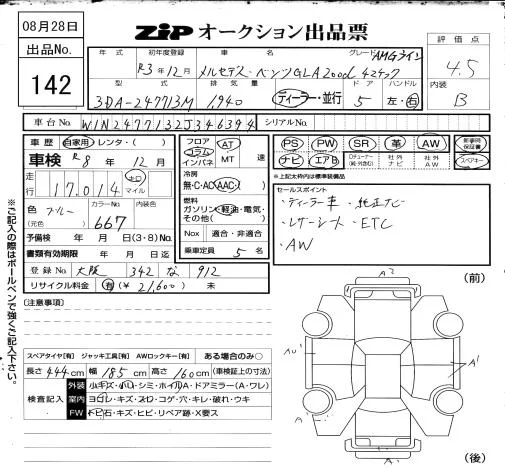 08月28日
出品No.
142
ZiP オークション出品票
評価点
4.5
内装
B
年式 初年度登録 車名 グレード AMGライン
R3年12月 メルセデス・ベンツGLA200d 4マチック
型式 排気量 ドア ハンドル
3DA-247713M 1,940 ディーラー・並行 5 左・右
車台No. W1N2477132J346394 シリアルNo.
車歴 自家用・レンタ・( )
車検 R8年12月
走行 17,014 キロ マイル
色 ブルー カラーNo. 667
(元色)
予備検 年 月 日(3・8)No.
書類有効期限 年 月 日迄
登録No. 大阪 342 な 912
リサイクル料金 有(¥ 21,600 ) 未
フロア コラム インパネ AT MT 速
冷房
無・C・AC・AAC・( )
燃料
ガソリン・軽油・電気・その他( )
Nox 適合・非適合
乗車定員 5 名
PS PW SR 革 AW 新車時保証書
ナビ エアB 社外ナビ 社外AW スペアキー
※上記太枠内は標準装備品
セールスポイント
・ディーラー車 ・純正ナビ
・レザーシート ・ETC
・AW
[注意事項]
スペアタイヤ[有] ジャッキ工具[有] AWロックキー[有] ある場合のみ○
長さ 444 cm 幅 185 cm 高さ 160 cm (車検証上の寸法)
検査記入
外装 小キズ・小凹・シミ・ホイルA・ドアミラー(A・ワレ)
室内 ヨゴレ・キズ・スレ・コゲ・穴・キレ・破れ・ウキ
FW トビ石・キズ・ヒビ・リペア跡・X要ス
※ご記入の際はボールペンで強くご記入下さい。
(前)
A'
(後)